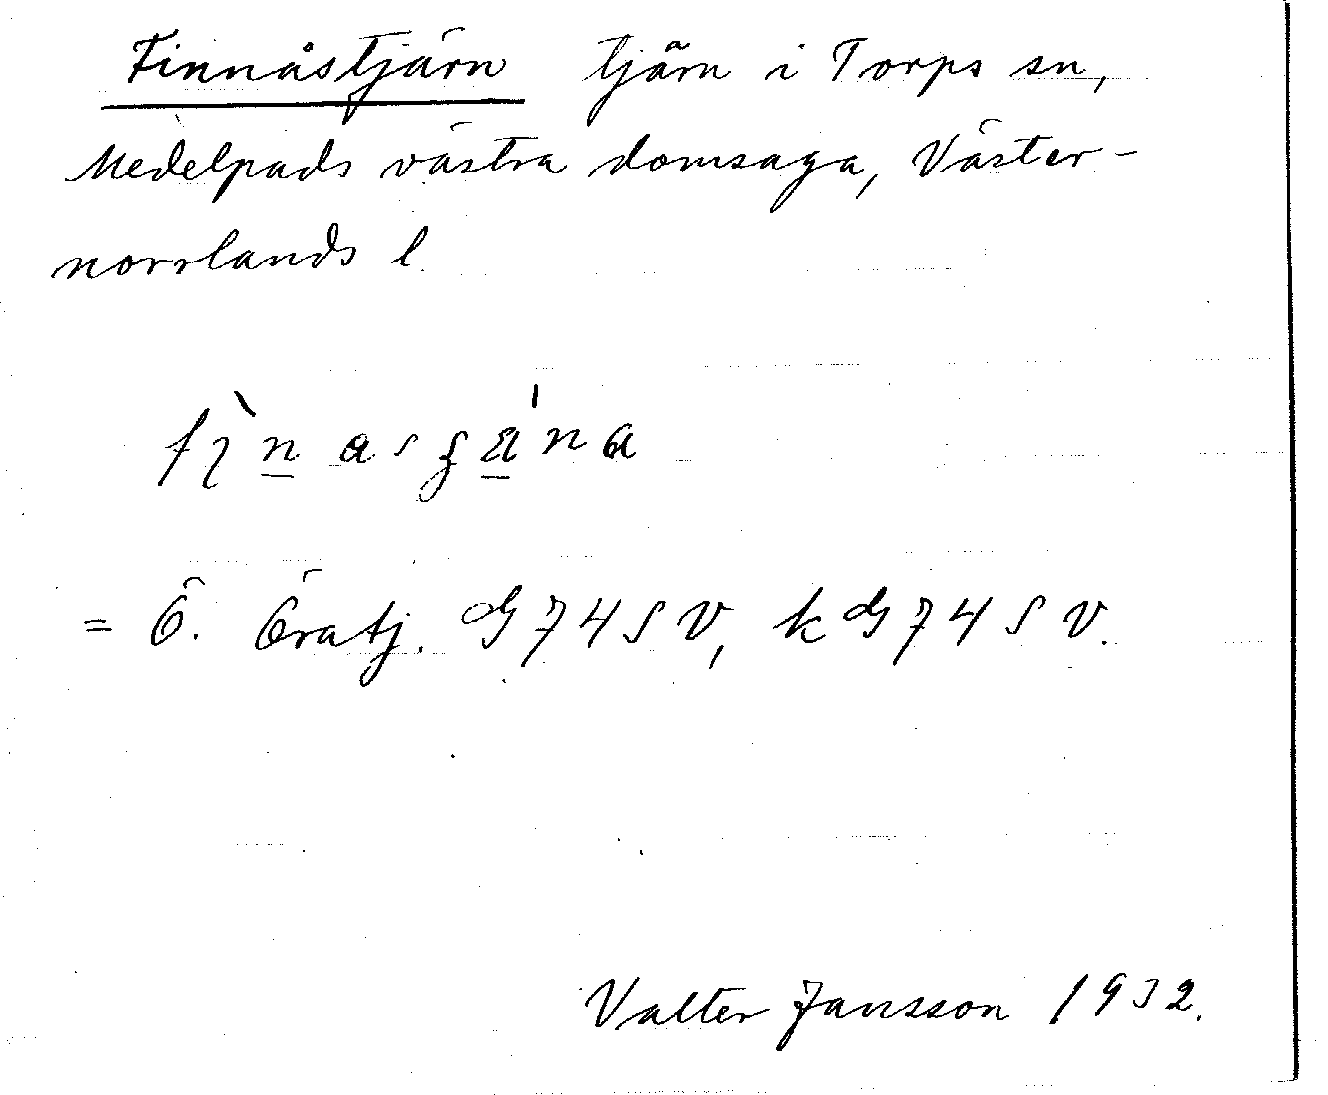 Finnåstjärn tjärn i Torps sn,
Medelpads västra domsaga, Väster-
norrlands l
= Ö. Öratj. G74SV, kG74SV.
Valter Jansson 1932.